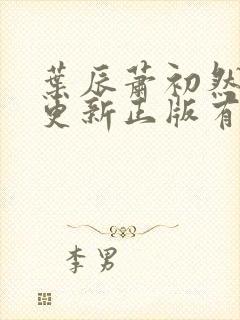 葉辰蕭初然
更新正版有
李男